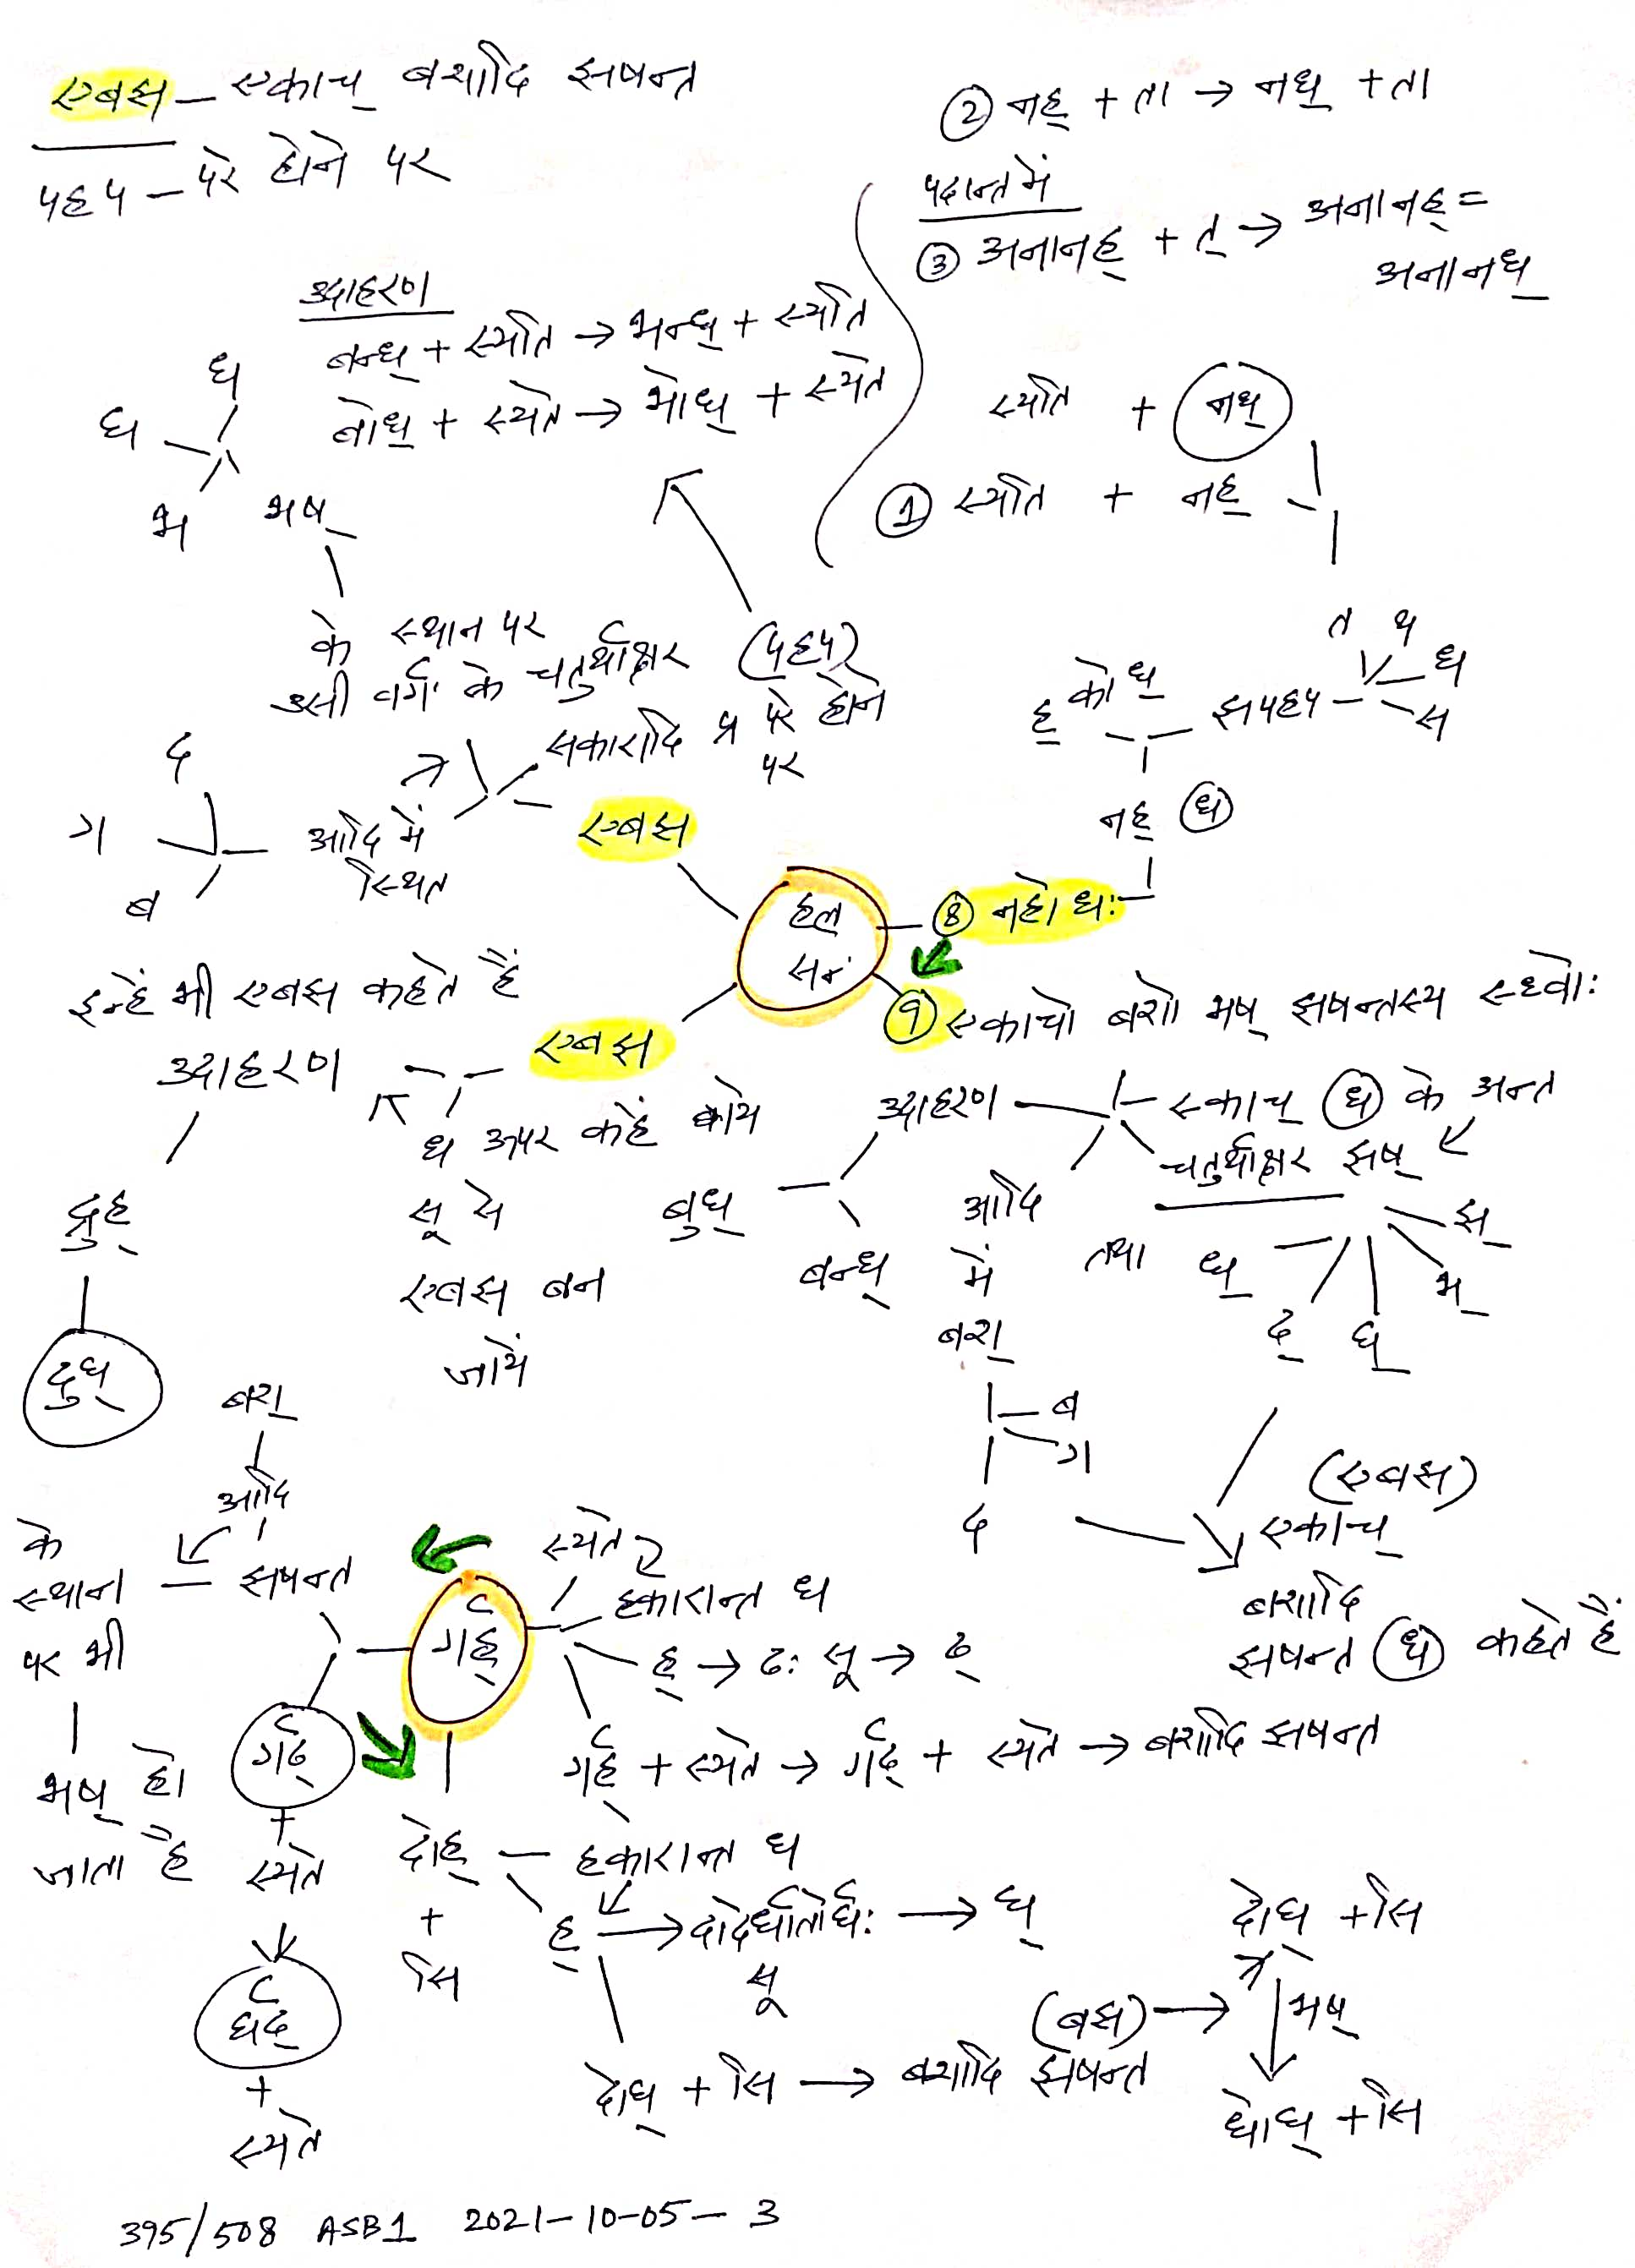 एबझ — एकाच् बशादि झषन्त
पहप — परे होने पर
② नह् + ता → नध् + ता
पदान्त में
③ अनानह् + त् → अनानह् =
अनानध्
उदाहरण
बन्ध् + स्यति → भन्ध् + स्यति
बोध् + स्यते → भोध् + स्यते
घ
ध
भ
भष्
स्यति + नध्
① स्यति + नह्
के स्थान पर
उसी वर्ग के चतुर्थाक्षर
(पहप)
सकारादि प्र परे होने
पर
द
ग
ब
आदि में
स्थित
एबझ
त थ
ध
स
ह् को ध्
झपहप
नह् ध
हल्
सन्
⑧ नहो धः
⑨ एकाचो बशो भष् झषन्तस्य स्ध्वोः
इन्हें भी एबझ कहते हैं
एबझ
उदाहरण
ध अपर कहे कार्य
सू से
एबझ बन
जायें
द्रुह्
दुघ्
उदाहरण
एकाच् ध के अन्त
चतुर्थाक्षर झष्
झ्
भ्
घ्
ढ्
ध्
तथा
आदि
में
बश्
ब
ग
द
बुध्
बन्ध्
(एबझ)
एकाच्
बशादि
झषन्त ध कहते हैं
बश्
आदि
झषन्त
के
स्थान
पर भी
भष् हो
जाता है
गर्ह्
स्यते
हकारान्त ध
ह् → ढः सू → ढ्
गर्ह् + स्यते → गर्ढ् + स्यते → बशादि झषन्त
गर्ढ्
+
स्यते
घर्ढ्
+
स्यते
दोह् — हकारान्त ध
+
सि
ह् → दादेर्धातोर्घः → घ्
सू
दोघ् + सि → बशादि झषन्त
(बझ) →
दोघ् + सि
भष्
धोघ् + सि
395/508 ASB1 2021-10-05-3